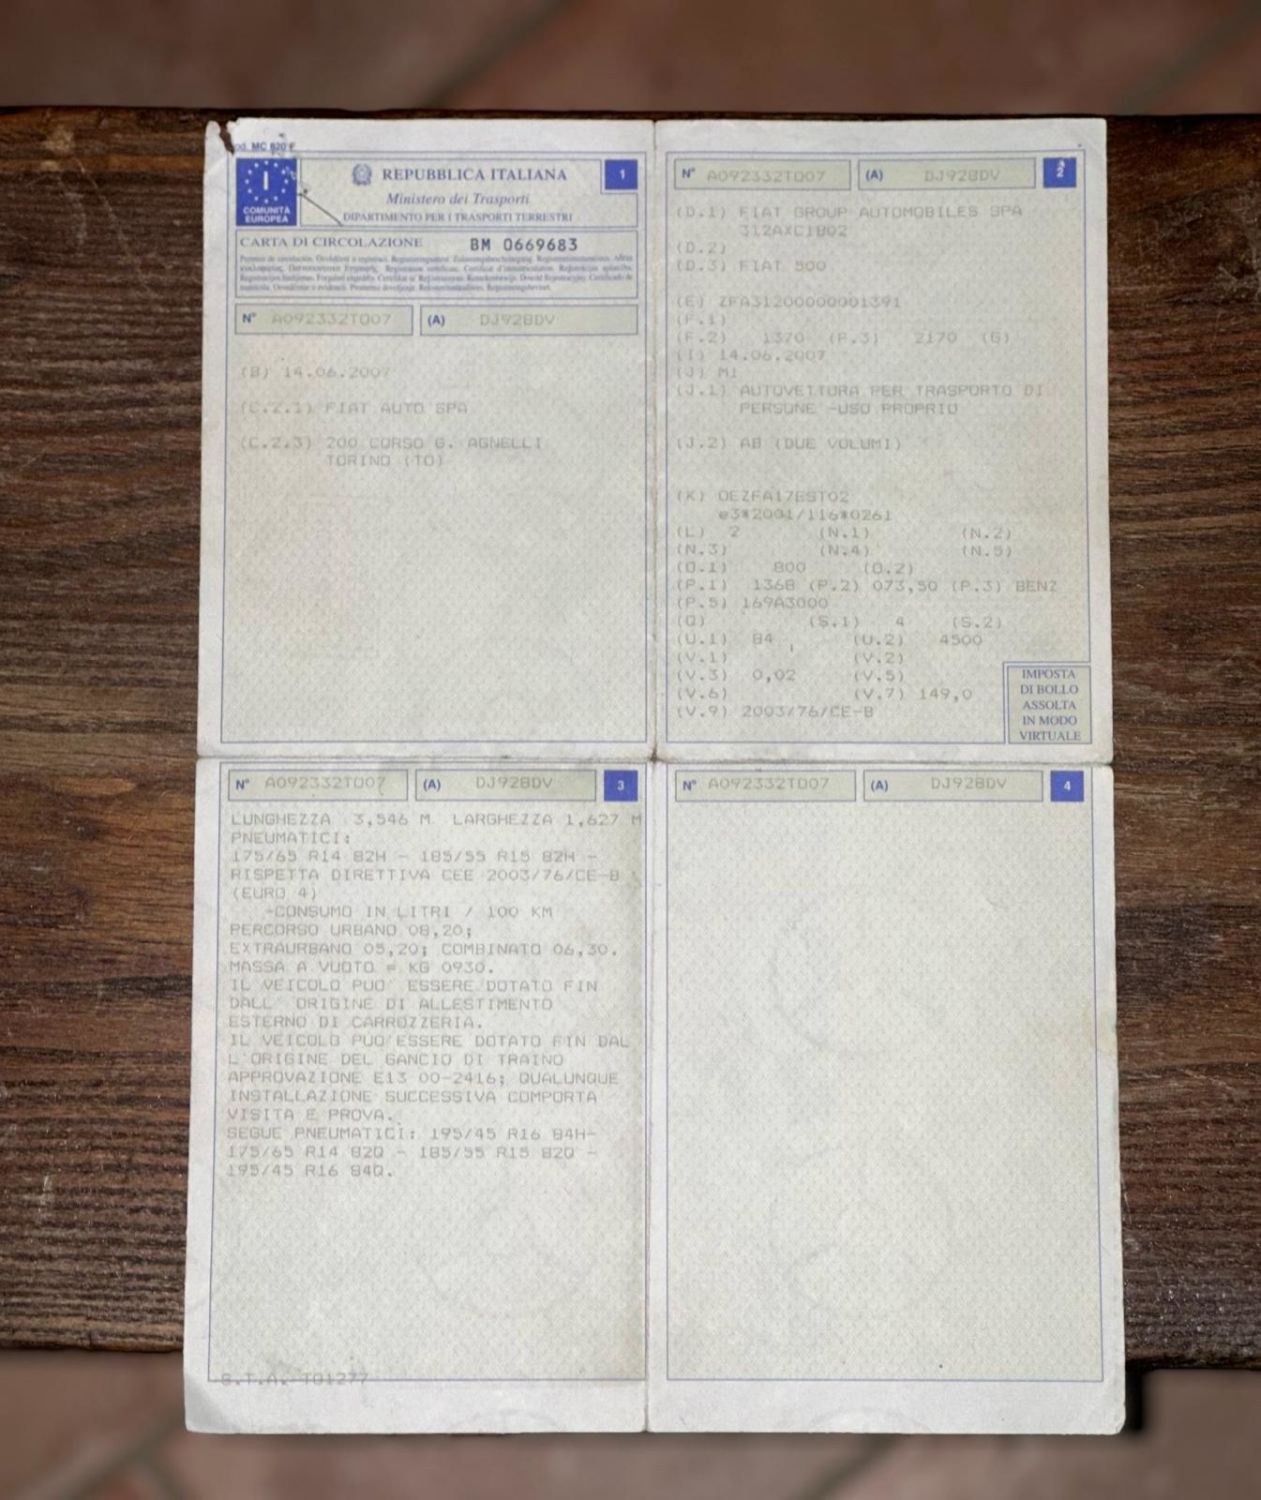 Mod. MC 820 F
COMUNITÀ
EUROPEA
I
REPUBBLICA ITALIANA
1
Ministero dei Trasporti
DIPARTIMENTO PER I TRASPORTI TERRESTRI
CARTA DI CIRCOLAZIONE BM 0669683
N° A092332TO07 (A) DJ928DV
(B) 14.06.2007
(C.2.1) FIAT AUTO SPA
(C.2.3) 200 CORSO G. AGNELLI
TORINO (TO)
N° A092332TO07 (A) DJ928DV 2
(D.1) FIAT GROUP AUTOMOBILES SPA
312AXC1B02
(D.2)
(D.3) FIAT 500
(E) ZFA31200000001391
(F.1)
(F.2) 1370 (F.3) 2170 (G)
(I) 14.06.2007
(J) M1
(J.1) AUTOVETTURA PER TRASPORTO DI
PERSONE -USO PROPRIO
(J.2) AB (DUE VOLUMI)
(K) OEZFA17EST02
e3*2001/116*0261
(L) 2 (N.1) (N.2)
(N.3) (N.4) (N.5)
(O.1) 800 (O.2)
(P.1) 1368 (P.2) 073,50 (P.3) BENZ
(P.5) 169A3000
(Q) (S.1) 4 (S.2)
(U.1) 84 (U.2) 4500
(V.1) (V.2)
(V.3) 0,02 (V.5)
(V.6) (V.7) 149,0
(V.9) 2003/76/CE-B
IMPOSTA
DI BOLLO
ASSOLTA
IN MODO
VIRTUALE
N° A092332TO07 (A) DJ928DV 3
LUNGHEZZA 3,546 M LARGHEZZA 1,627 M
PNEUMATICI:
175/65 R14 82H - 185/55 R15 82H -
RISPETTA DIRETTIVA CEE 2003/76/CE-B
(EURO 4)
-CONSUMO IN LITRI / 100 KM
PERCORSO URBANO 08,20;
EXTRAURBANO 05,20; COMBINATO 06,30.
MASSA A VUOTO = KG 0930.
IL VEICOLO PUO' ESSERE DOTATO FIN
DALL' ORIGINE DI ALLESTIMENTO
ESTERNO DI CARROZZERIA.
IL VEICOLO PUO'ESSERE DOTATO FIN DAL
L'ORIGINE DEL GANCIO DI TRAINO
APPROVAZIONE E13 00-2416; QUALUNQUE
INSTALLAZIONE SUCCESSIVA COMPORTA
VISITA E PROVA.
SEGUE PNEUMATICI: 195/45 R16 84H-
175/65 R14 82Q - 185/55 R15 82Q -
195/45 R16 84Q.
S.T.A. TO1277
N° A092332TO07 (A) DJ928DV 4